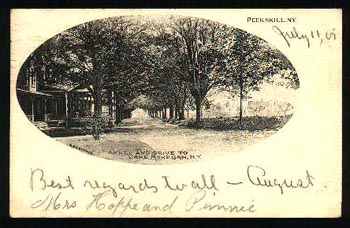 PEEKSKILL, N.Y.
July 11, 05
ANNEX AND DRIVE TO
LAKE MOHEGAN, N.Y.
Best regards to all – August
Mrs Hoppe and Pinnie